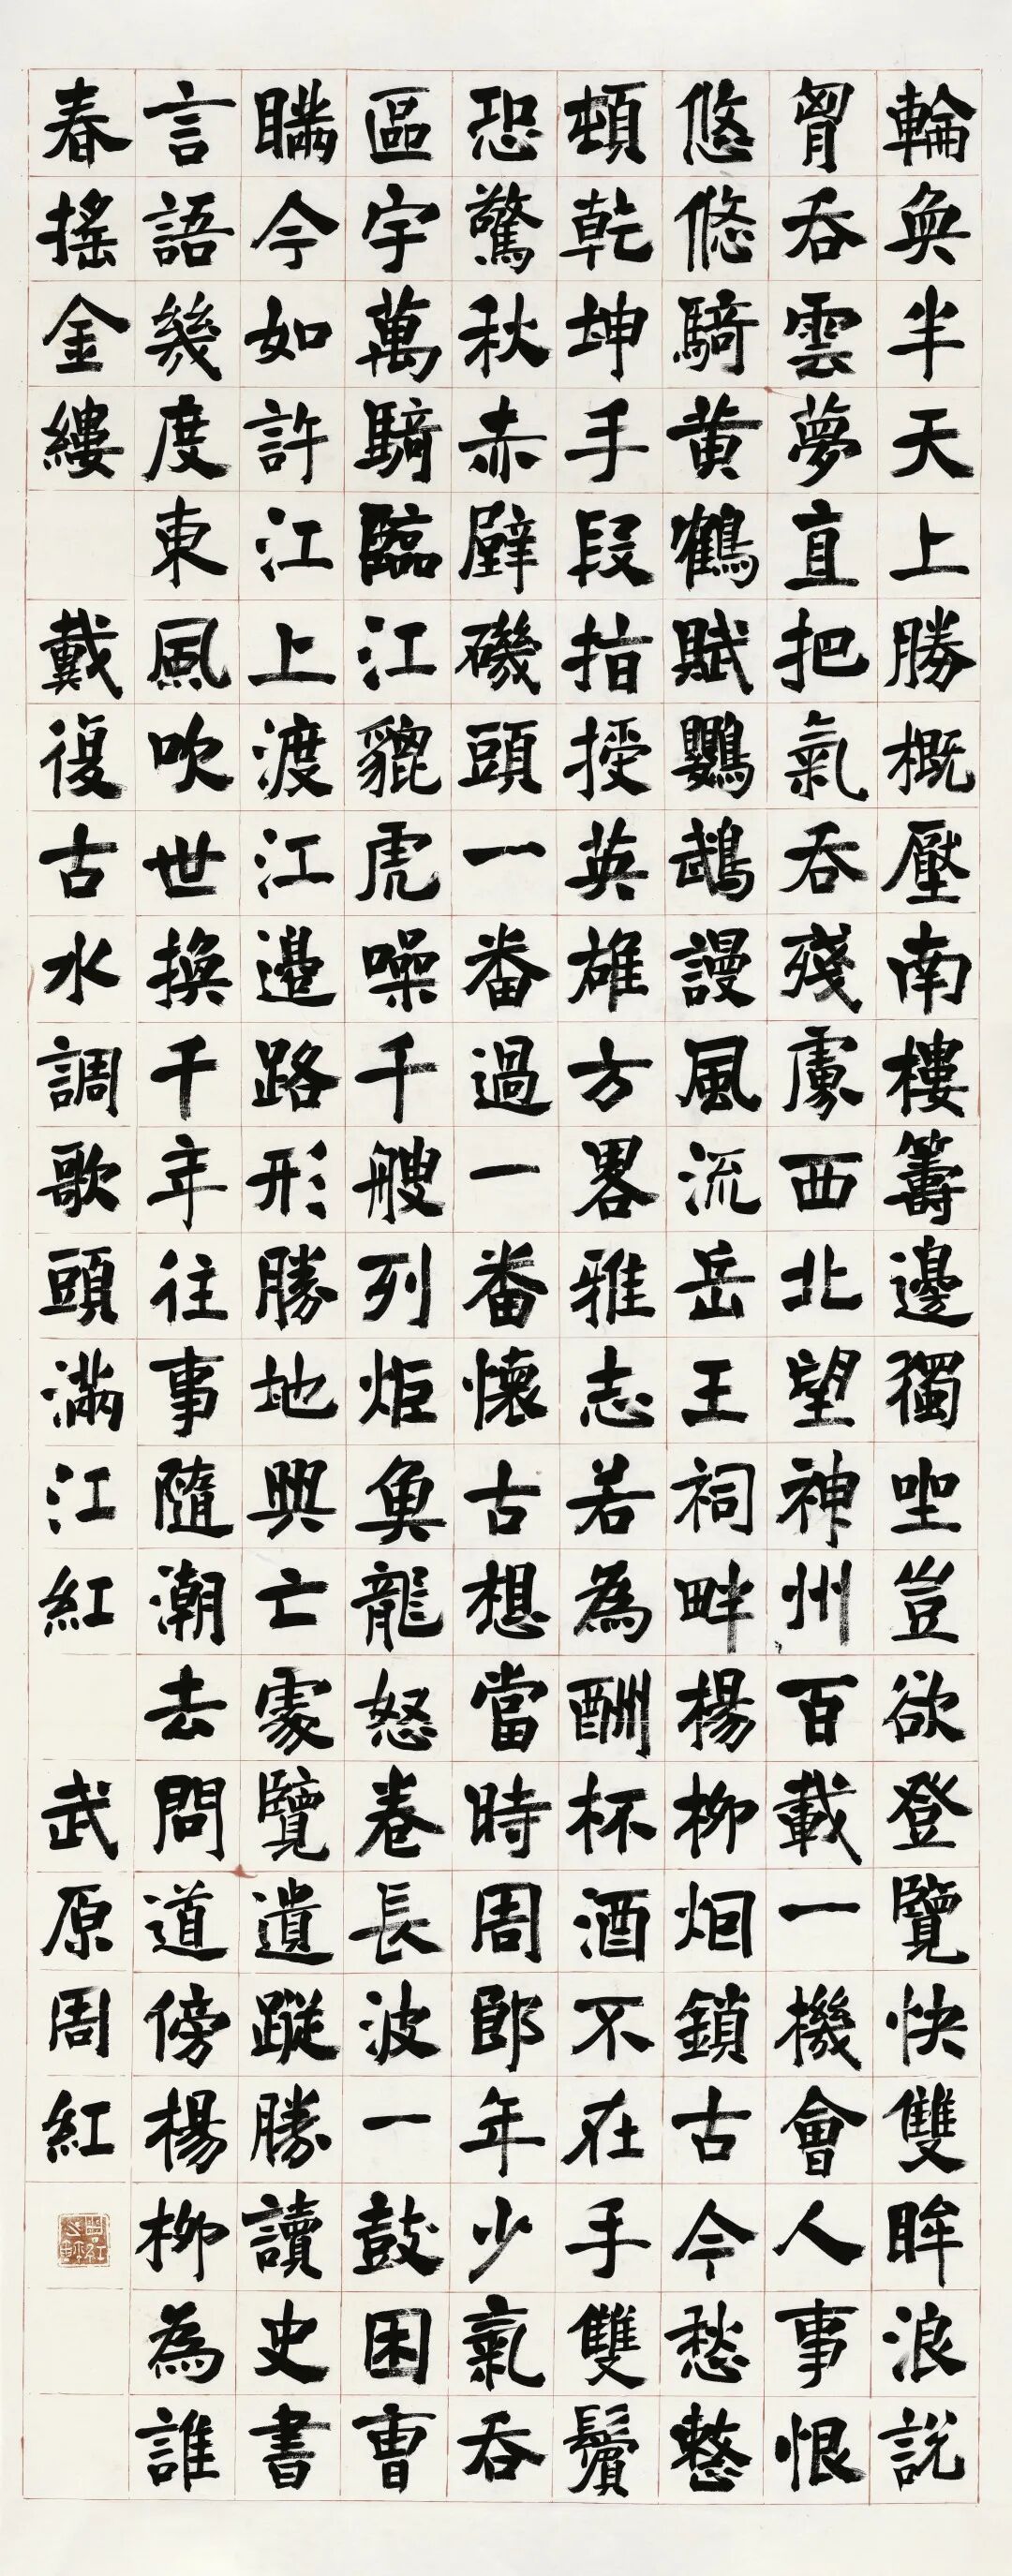 輪奐半天上勝概壓南樓籌邊獨坐豈欲登覽快雙眸浪說
胷吞雲夢直把氣吞殘虜西北望神州百載一機會人事恨
悠悠騎黃鶴賦鸚鵡謾風流岳王祠畔楊柳烟鎖古今愁整
頓乾坤手段指授英雄方畧雅志若為酬杯酒不在手雙鬢
恐驚秋赤壁磯頭一番過一番懷古想當時周郎年少氣吞
區宇萬騎臨江貔虎噪千艘列炬魚龍怒卷長波一鼓困曹
瞞今如許江上渡江邊路形勝地興亡處覽遺蹤勝讀史書
言語幾度東風吹世換千年往事隨潮去問道傍楊柳為誰
春搖金縷 戴復古水調歌頭滿江紅 武原周紅